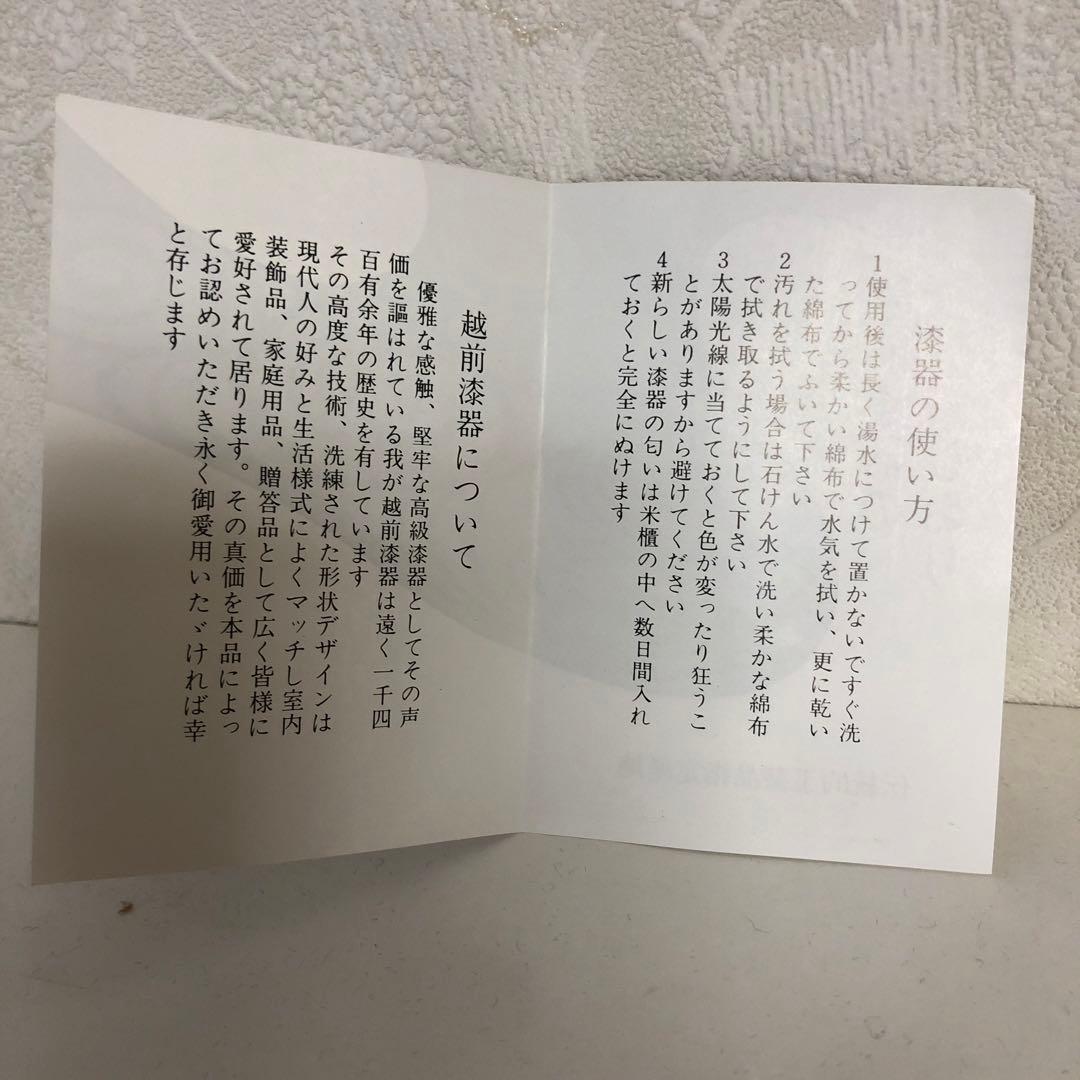 漆器の使い方
1使用後は長く湯水につけて置かないですぐ洗
ってから柔かい綿布で水気を拭い、更に乾い
た綿布でふいて下さい
2汚れを拭う場合は石けん水で洗い柔かな綿布
で拭き取るようにして下さい
3太陽光線に当てておくと色が変ったり狂うこ
とがありますから避けてください
4新らしい漆器の匂いは米櫃の中へ数日間入れ
ておくと完全にぬけます
越前漆器について
優雅な感触、堅牢な高級漆器としてその声
価を謳はれている我が越前漆器は遠く一千四
百有余年の歴史を有しています
その高度な技術、洗練された形状デザインは
現代人の好みと生活様式によくマッチし室内
装飾品、家庭用品、贈答品として広く皆様に
愛好されて居ります。その真価を本品によっ
てお認めいただき永く御愛用いたゞければ幸
と存じます